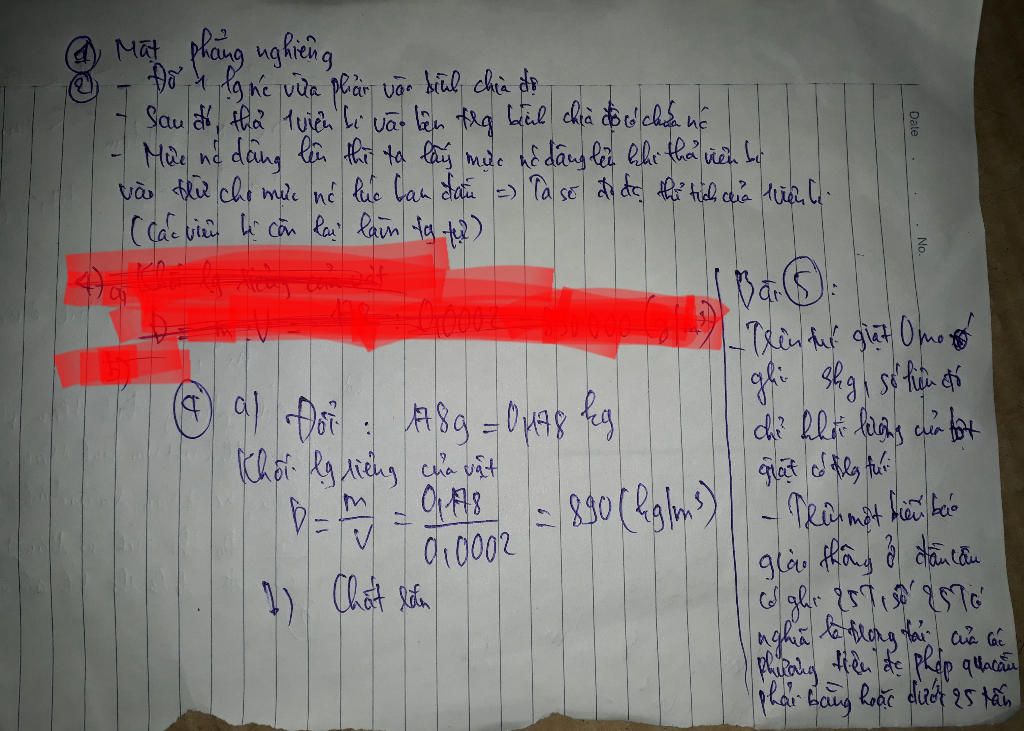 ① Mặt phẳng nghiêng
② - Đổ 1 lg nc vừa phải vào bình chia độ
- Sau đó, thả 1 viên bi vào bên trg bình chia độ có chứa nc
- Mức nc dâng lên thì ta lấy mực nc dâng lên khi thả viên bi
vào trừ cho mực nc lúc ban đầu => Ta sẽ đo đc thể tích của 1 viên bi
(Các viên bi còn lại làm tg tự)
4) a) Khối lg riêng của vật
D = m . V = 178 : 0,0002
b)
④ a) Đổi : 178g = 0,178 kg
Khối lg riêng của vật
D = m/V = 0,178/0,0002 = 890 (kg/m³)
b) Chất rắn
Bài ⑤ :
- Trên túi giặt Omo
ghi 3kg, số liệu đó
chỉ khối lượng của bột
giặt có trg túi
- Trên một biển báo
giao thông ở đầu cầu
có ghi 25T, số 25T có
nghĩa là trọng tải của các
phương tiện đc phép qua cầu
phải bằng hoặc dưới 25 tấn
Date
No.